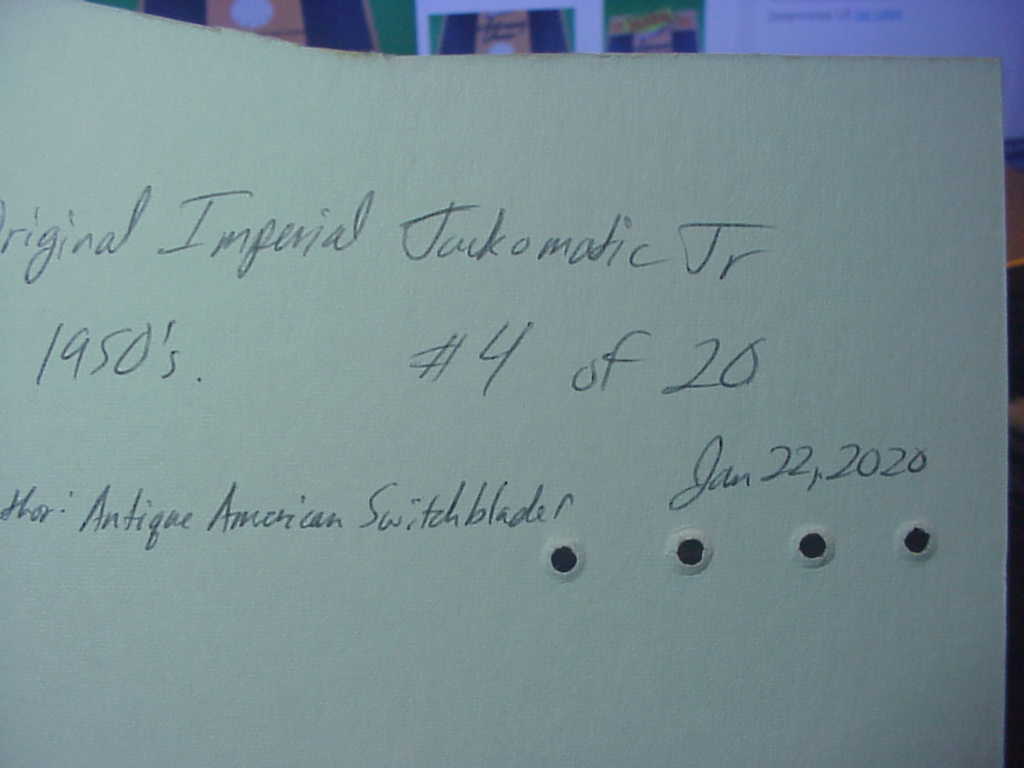 Original Imperial Jackomatic Jr
1950's. #4 of 20
Jan 22, 2020
thor: Antique American Switchblader